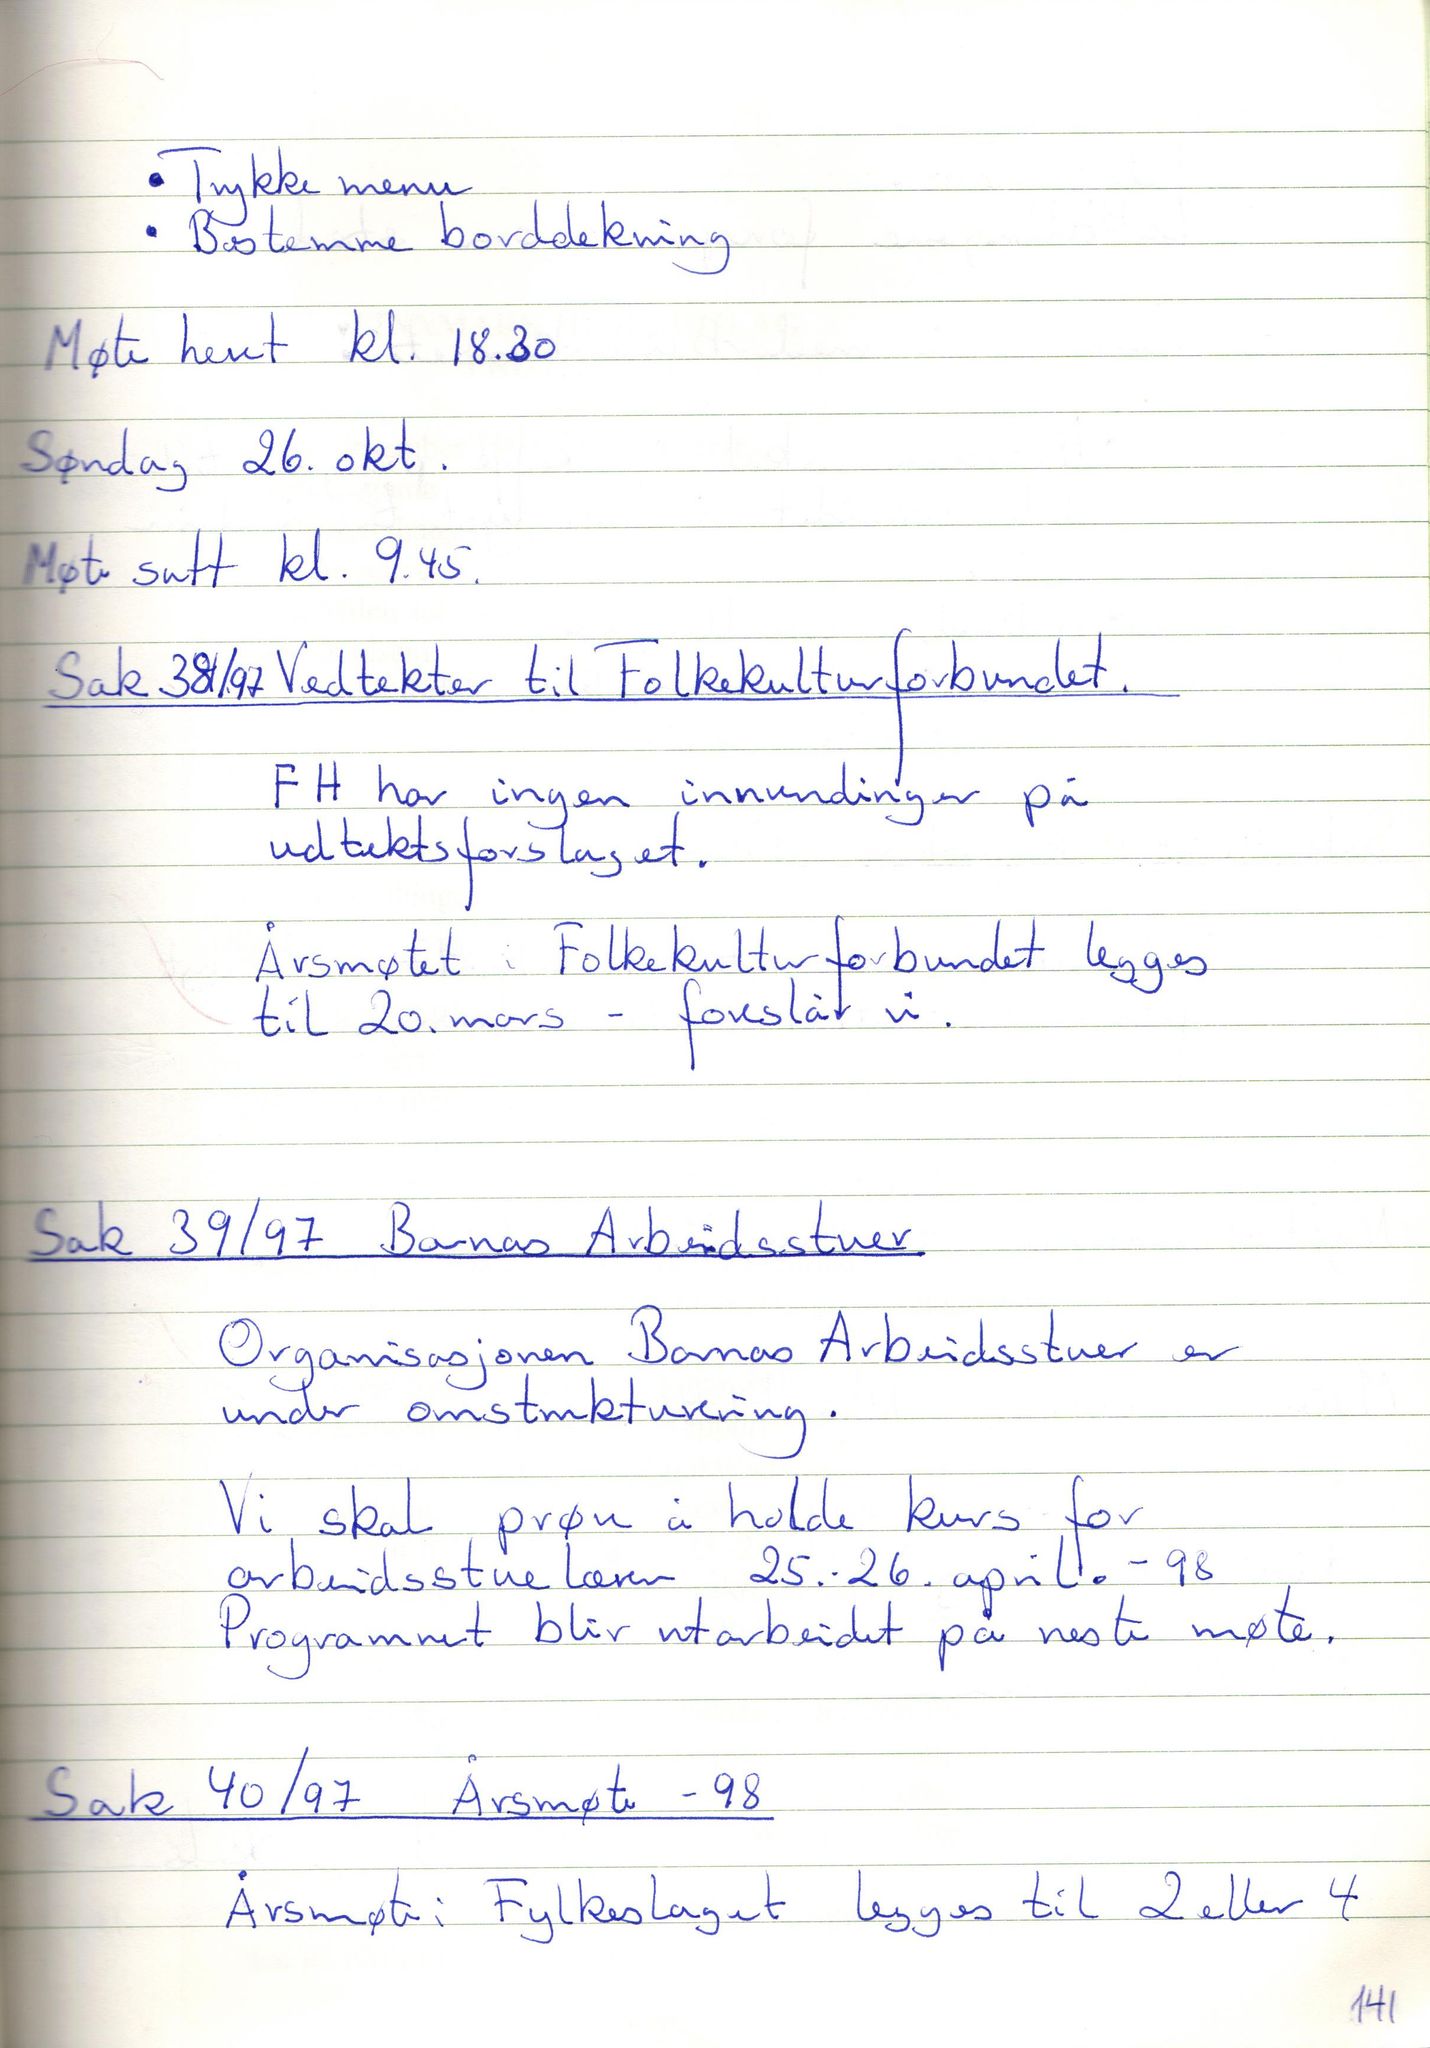 • Trykke menu
• Bestemme borddekning
Møte hevet kl. 18.30
Søndag 26. okt.
Møte satt kl. 9.45.
Sak 38/97 Vedtekter til Folkekulturforbundet.
FH har ingen innvendinger på
vedtektsforslaget.
Årsmøtet i Folkekulturforbundet legges
til 20. mars - foreslår vi.
Sak 39/97 Barnas Arbeidsstuer
Organisasjonen Barnas Arbeidsstuer er
under omstrukturering.
Vi skal prøve å holde kurs for
arbeidsstuelærere 25.-26. april. -98
Programmet blir utarbeidet på neste møte.
Sak 40/97 Årsmøte -98
Årsmøte i Fylkeslaget legges til 2 eller 4
141